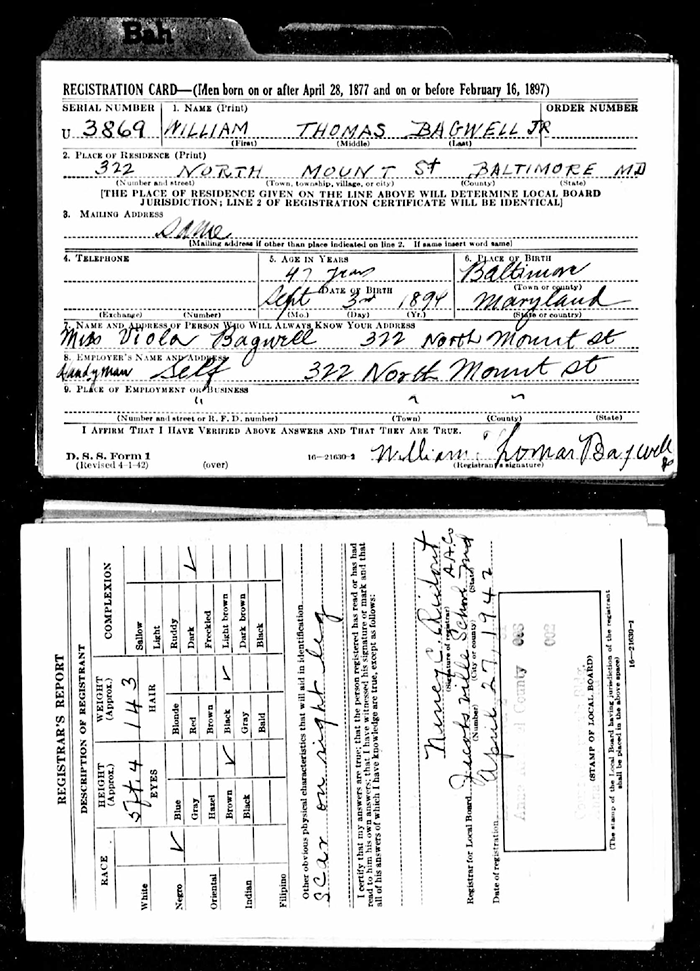 Bah
REGISTRATION CARD—(Men born on or after April 28, 1877 and on or before February 16, 1897)
SERIAL NUMBER 1. NAME (Print) ORDER NUMBER
U 3869 WILLIAM THOMAS BAGWELL JR
(First) (Middle) (Last)
2. PLACE OF RESIDENCE (Print)
322 NORTH MOUNT St BALTIMORE MD
(Number and street) (Town, township, village, or city) (County) (State)
[THE PLACE OF RESIDENCE GIVEN ON THE LINE ABOVE WILL DETERMINE LOCAL BOARD
JURISDICTION; LINE 2 OF REGISTRATION CERTIFICATE WILL BE IDENTICAL]
3. MAILING ADDRESS
Same
[Mailing address if other than place indicated on line 2. If same insert word same]
4. TELEPHONE 5. AGE IN YEARS 6. PLACE OF BIRTH
47 years Baltimore
DATE OF BIRTH (Town or county)
Sept 3rd 1894 Maryland
(Exchange) (Number) (Mo.) (Day) (Yr.) (State or country)
7. NAME AND ADDRESS OF PERSON WHO WILL ALWAYS KNOW YOUR ADDRESS
Miss Viola Bagwell 322 North Mount st
8. EMPLOYER'S NAME AND ADDRESS
Handyman Self 322 North Mount St
9. PLACE OF EMPLOYMENT OR BUSINESS
" " "
(Number and street or R. F. D. number) (Town) (County) (State)
I AFFIRM THAT I HAVE VERIFIED ABOVE ANSWERS AND THAT THEY ARE TRUE.
D. S. S. Form 1
(Revised 4-1-42) (over) 16—21630-2 William Thomas Bagwell Jr
(Registrant's signature)
REGISTRAR'S REPORT
DESCRIPTION OF REGISTRANT
RACE HEIGHT (Approx.) WEIGHT (Approx.) COMPLEXION
5 ft. 4 143
EYES HAIR
White Sallow
Light
Negro ✓ Blue Blonde Ruddy
Gray Red Dark ✓
Oriental Hazel Brown Freckled
Brown ✓ Black ✓ Light brown
Indian Black Gray Dark brown
Bald Black
Filipino
Other obvious physical characteristics that will aid in identification
Scar on right leg
I certify that my answers are true; that the person registered has read or has had
read to him his own answers; that I have witnessed his signature or mark and that
all of his answers of which I have knowledge are true, except as follows:
Nancy C.
(Signature of registrar)
Registrar for Local Board Jacobsville School A.A.Co Md
(Number) (City or county) (State)
Date of registration April 27, 1942
County 003
002
(STAMP OF LOCAL BOARD)
(The stamp of the Local Board having jurisdiction of the registrant
shall be placed in the above space)
16—21630-1